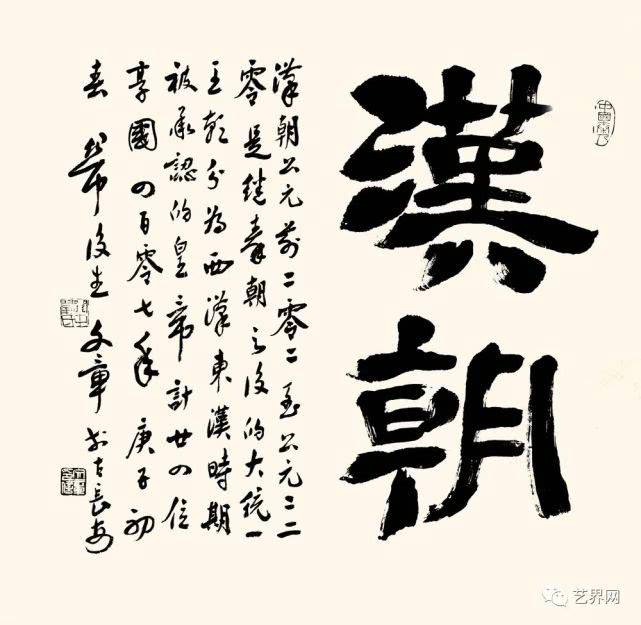 漢朝
漢朝公元前二零二至公元二二
零是继秦朝之後的大统一
王朝分為西漢東漢時期
被承認的皇帝計廿四位
享國四百零七年庚子初
春後生文章於古長安
艺界网